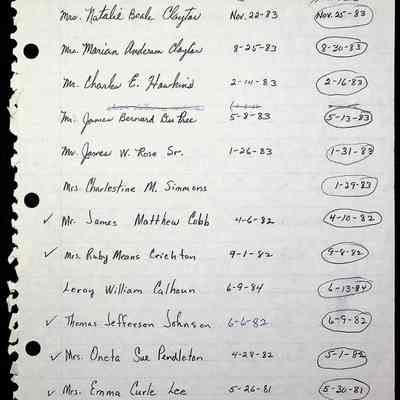 Mrs. Natalie Beale Clayton Nov. 22-83 Nov. 25-83
Mrs. Marian Anderson Clayton 8-25-83 8-30-83
Mr. Charles E. Hawkins 2-14-83 2-16-83
Mr. James Bernard DuPree 5-8-83 5-13-83
Mr. James W. Rose Sr. 1-26-83 1-31-83
Mrs. Charlestine M. Simmons 1-29-83
✓ Mr. James Matthew Cobb 4-6-82 4-10-82
✓ Mrs. Ruby Means Creighton 9-1-82 9-8-82
Leroy William Calhoun 6-9-84 6-13-84
✓ Thomas Jefferson Johnson 6-6-82 6-9-82
✓ Mrs. Oneta Sue Pendleton 4-28-82 5-1-82
✓ Mrs. Emma Curle Lee 5-26-81 5-30-81